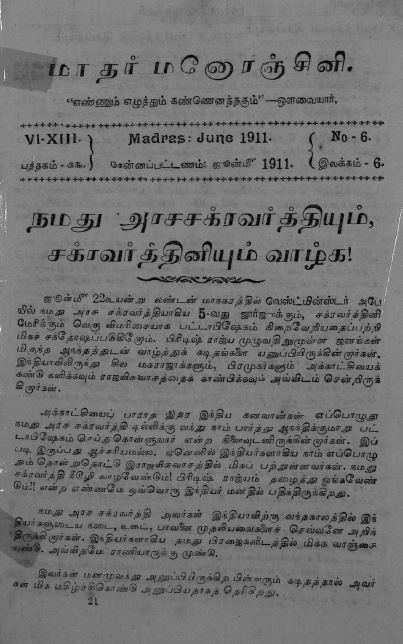 மாதர் மனோரஞ்சினி.
"எண்ணும் எழுத்தும் கண்ணெனத்தகும்"—ஔவையார்.
VI-XIII. Madras: June 1911. No - 6.
புத்தகம் - சென்னப்பட்டணம்: ஜூன்மீ 1911. இலக்கம் - 6.
நமது அரசசக்ரவர்த்தியும்,
சக்ரவர்த்தினியும் வாழ்க!
ஜூன்மீ 22உயன்று லண்டன் மாநகரத்தில் வேஸ்ட்மின்ஸ்டர் அபே
யில் நமது அரச சக்ரவர்த்தியாகிய 5-வது ஜார்ஜுக்கும், சக்ரவர்த்தினி
மேரிக்கும் வெகு விமரிசையாக பட்டாபிஷேகம் நிறைவேறியதைப்பற்றி
மிகச் சந்தோஷப்படுகிறோம். பிரிடிஷ் ராஜ்ய முழுவதிலுமுள்ள ஜனங்கள்
மிகுந்த ஆநந்தத்துடன் வாழ்த்துக் கடிதங்களை யனுப்பியிருக்கின்றார்கள்.
இந்தியாவிலிருந்து சில மகாராஜாக்களும், பிரமுகர்களும் அக்காட்சியைக்
கண்டு களிக்கவும் ராஜவிசுவாசத்தைக் காண்பிக்கவும் அவ்விடம் சென்றிருக்
கிறார்கள்.
அக்காட்சியைப் பாராத இதர இந்திய கனவான்கள் எப்பொழுது
நமது அரச சக்ரவர்த்தி டில்லிக்கு வந்து காம் பார்த்து ஆநந்திக்குமாறு பட்
டாபிஷேகம் செய்து கொள்ளுவார் என்ற நினைவுடனிருக்கின்றார்கள். இப்
படி இருப்பது ஆச்சரியமல்ல. ஏனெனில் இந்தியர்களாகிய நாம் எப்பொழு
தும் தொன்றுதொட்டு இராஜவிசுவாசத்தில் மிகப் பற்றுள்ளவர்கள். நமது
சக்ரவர்த்தி நீடூழி வாழவேண்டும்! பிரிடிஷ் ராஜ்யம் தழைத்து ஓங்கவேண்
டும்!! என்ற எண்ணமே ஒவ்வொரு இந்தியர் மனதில் பதிந்திருக்கிறது.
நமது அரச சக்ரவர்த்தி அவர்கள் இந்தியாவிற்கு வந்தகாலத்தில் இந்
தியர்களுடைய நடை, உடை, பாவனை முதலியவைகளைச் செவ்வனே அறிந்
திருக்கிறார்கள். இந்தியர்களாகிய தமது பிரஜைகளிடத்தில் மிக்க வாஞ்சை
யுண்டு. அவ்விதமே ராணியாருக்கு முண்டு.
இவர்கள் மனமுவந்து அனுப்பியிருக்கிற பின்வரும் கடிதத்தால் அவர்
கள் மிக மகிழ்ச்சிகொண்டு அனுப்பியதாகத் தெரிகிறது.
21